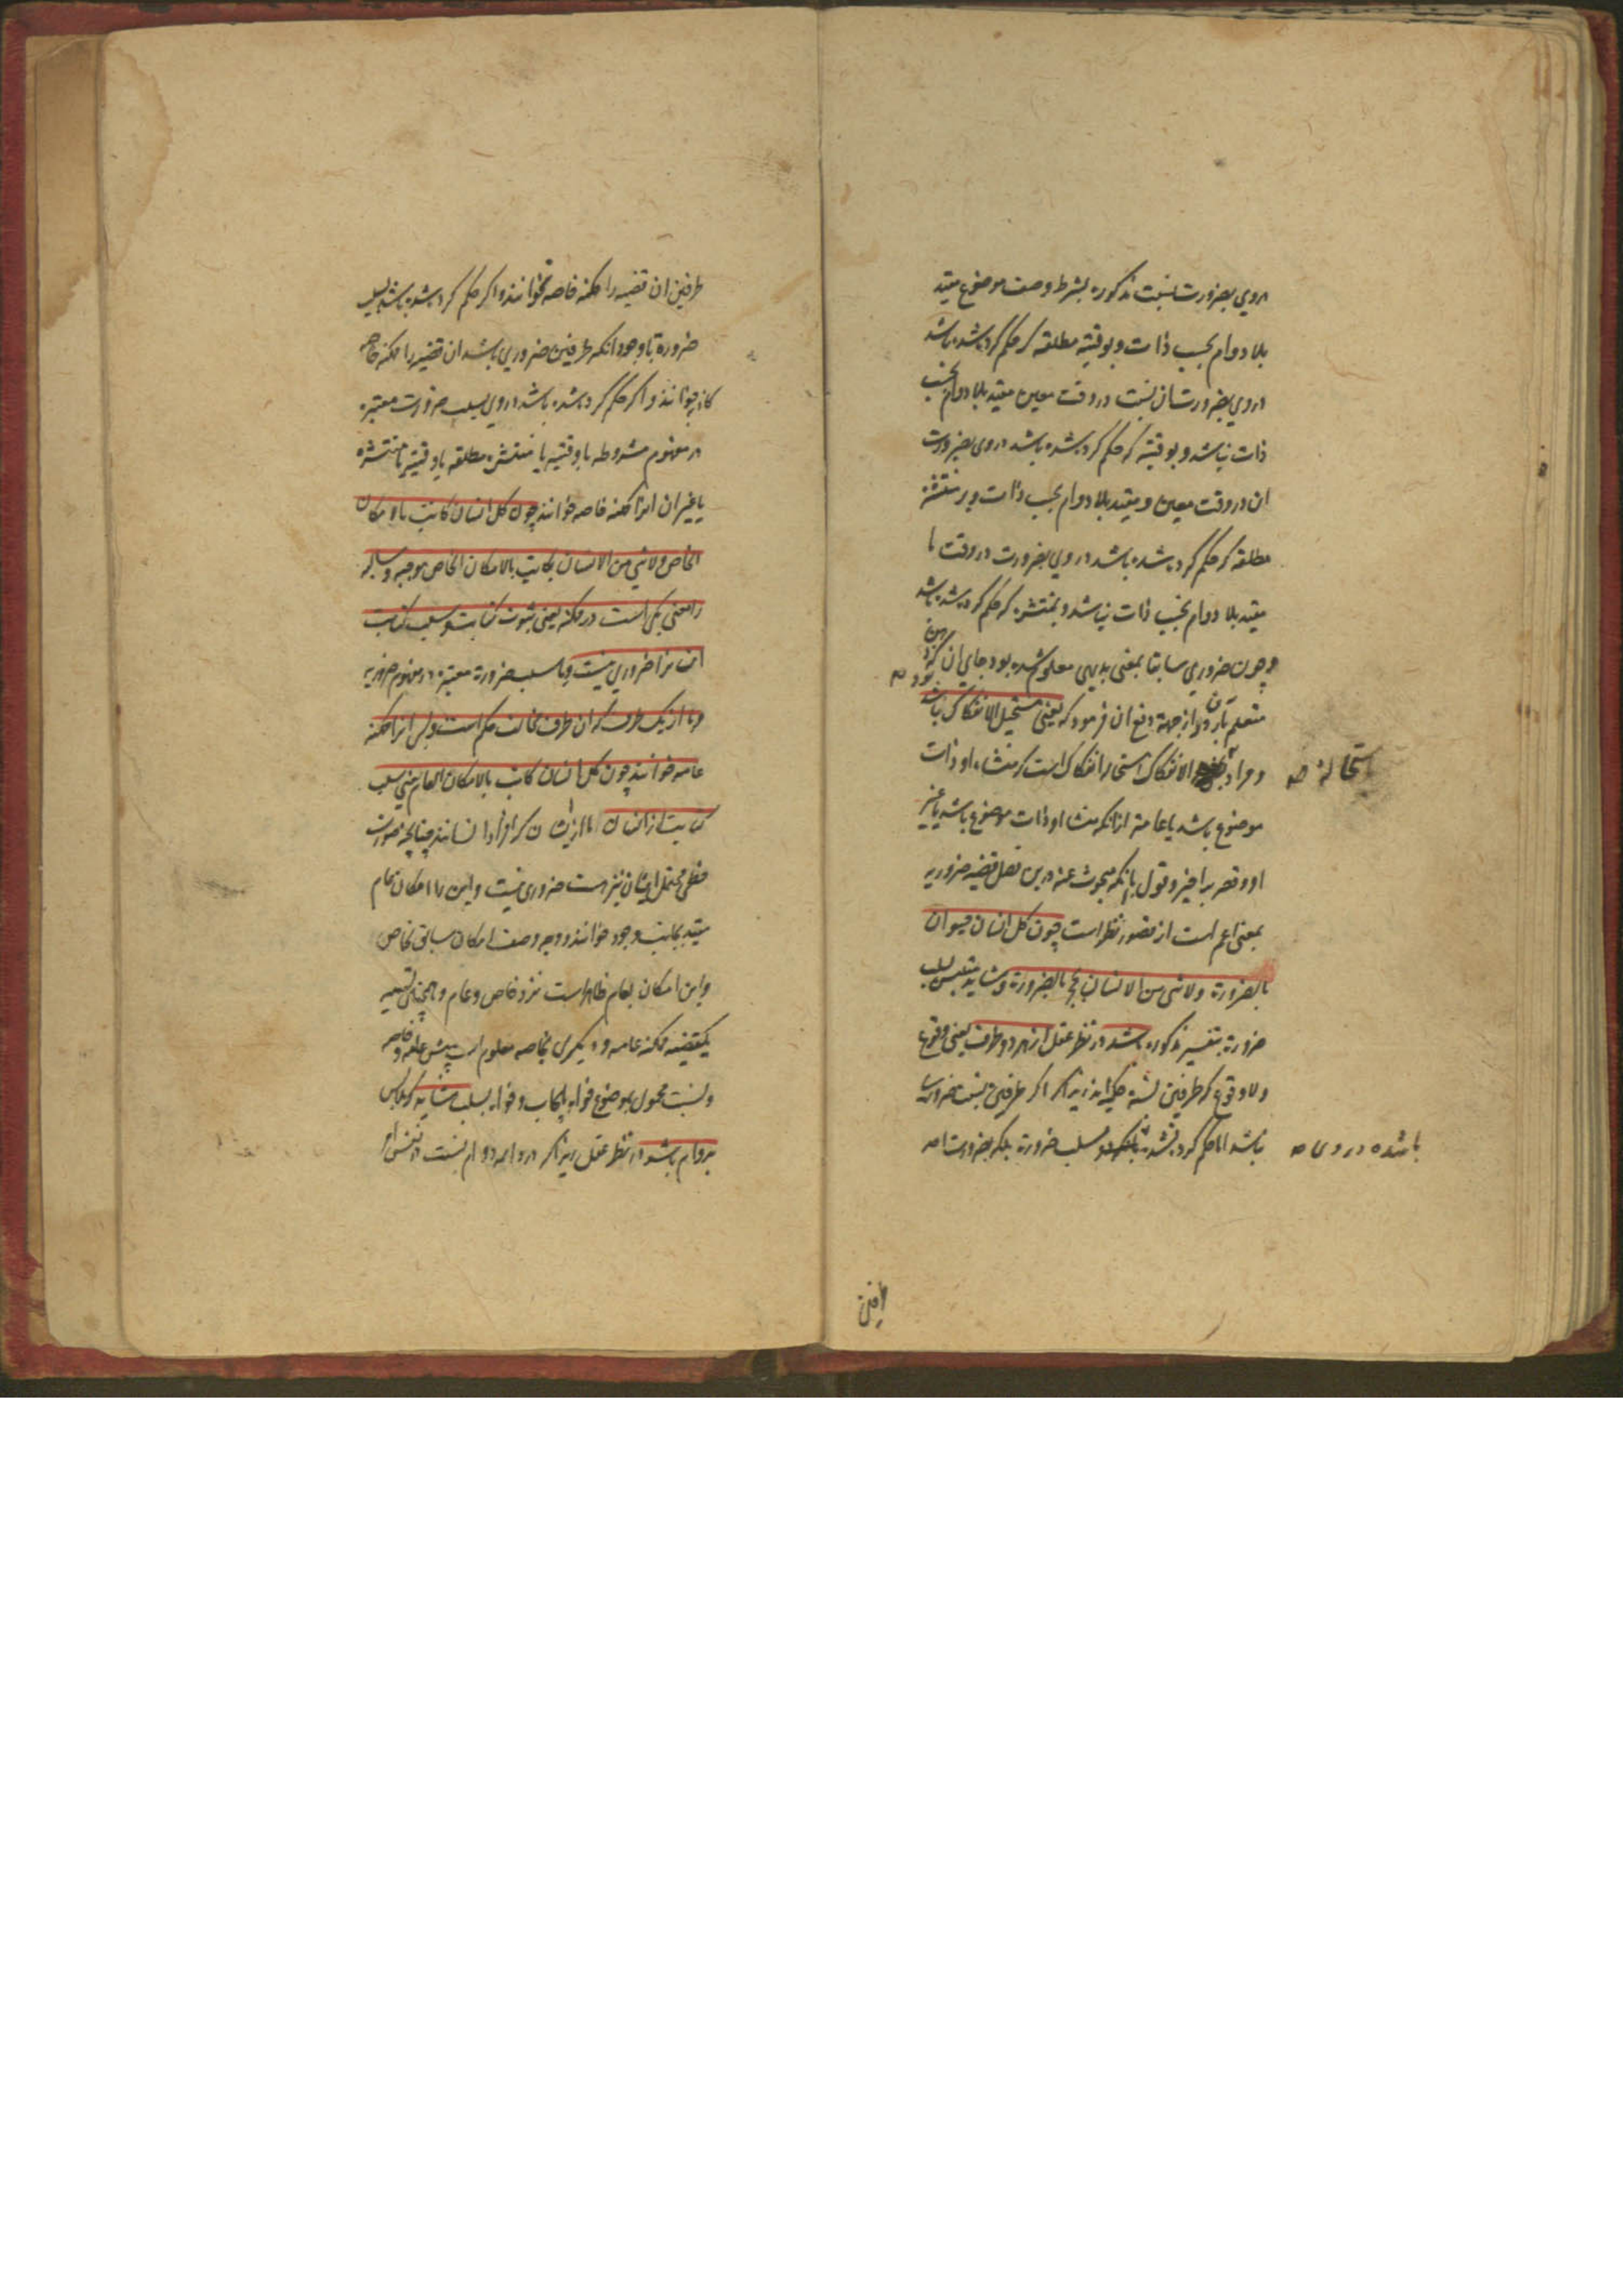 در وی بضرورت نسبت مذکوره بشرط وصف موضوع مقید
بلا دوام بحسب ذات و بوقتیه مطلقه که حکم کرده شده باشد
در وی بضرورت ان نسبت در وقت معین مقید بلا دوام بحسب
ذات نباشد و بوقتیه که حکم کرده شده باشد در وی بضرورت
ان در وقت معین و مقید بلا دوام بحسب ذات و بر منتشره
مطلقه که حکم کرده شده باشد در وی بضرورت در وقت ما
مقید بلا دوام بحسب ذات نباشد و بمنتشره که حکم کرده شده باشد
و چون ضروری سابقا بمعنی بدیهی معلوم شده بود جای ان
متعلم از جهة دفع ان فرمود که یعنی مستحیل الانفکاک باشد
و مراد الانفکاک استحاله انفکاک است که منشاء او ذات
استحالة صه
موضوع باشد یا عامتر ازانکه منشا او ذات موضوع باشد یا غیر
او و قصر بر اخیر و قول بانکه مبحوث عنه درین فصل قضیه ضروریه
بمعنی اعم است از قصور نظر است چون کل انسان حیوان
بالضرورة ولا شی من الانسان بحجر بالضرورة و شاید متلبس بسلب
ضرورة بتفسیر مذکوره باشد در نظر عقل از هر دو طرف یعنی وقوع
ولا وقوع که طرفین نسبة حکمیه اند زیرا که اگر طرفین نسبت ضروری
باشد اما حکم کرده نشده سلب ضرورة بلکه بضرورت احد
باشده در وی صه
طرفین
طرفین ان قضیه را ممکنه خاصه نخوانند و اگر حکم کرده شده باشد بسلب
ضرورة با وجود انکه طرفین ضروری باشد ان قضیه را ممکنه خاصه
کاذبه خوانند و اگر حکم کرده شده باشد در وی بسلب ضرورت معتبره
در مفهوم مشروطه یا وقتیه یا منتشره مطلقه یا وقتیه یا منتشره
یا غیر ان انرا ممکنه خاصه خوانند چون کل انسان کاتب بالامکان
الخاص ولا شی من الانسان بکاتب بالامکان الخاص موجبه و سالبه
را معنی یکی است در ممکنه یعنی ثبوت کتابت و سلب کتابت
انسانرا ضروری نیست و یا سلب ضرورة معتبره در مفهوم ضروریه
و یا از یک طرف که ان طرف مخالف حکم است و بس انرا ممکنه
عامه خوانند چون کل انسان کاتب بالامکان العام یعنی سلب
کتابت از انسان اما ازیشان که افراد انسانند چنانچه صورت
خطی محتمل ایشان نیز است ضروری نیست و این را امکان عام
مقید بجانب وجود خوانند و وجه وصف امکان سابق بخاص
و این امکان بعام ظاهر است نزد خاص و عام و همچنین تسمیه
یکقضیه ممکنه عامه و دیگری بخاصه معلوم است پیش عامه و خاصه
و نسبت محمول بموضوع خواه بایجاب و خواه بسلب شاید که متلبس
بدوام باشد در نظر عقل زیرا که در دایمه دوام نسبت در نفس امر